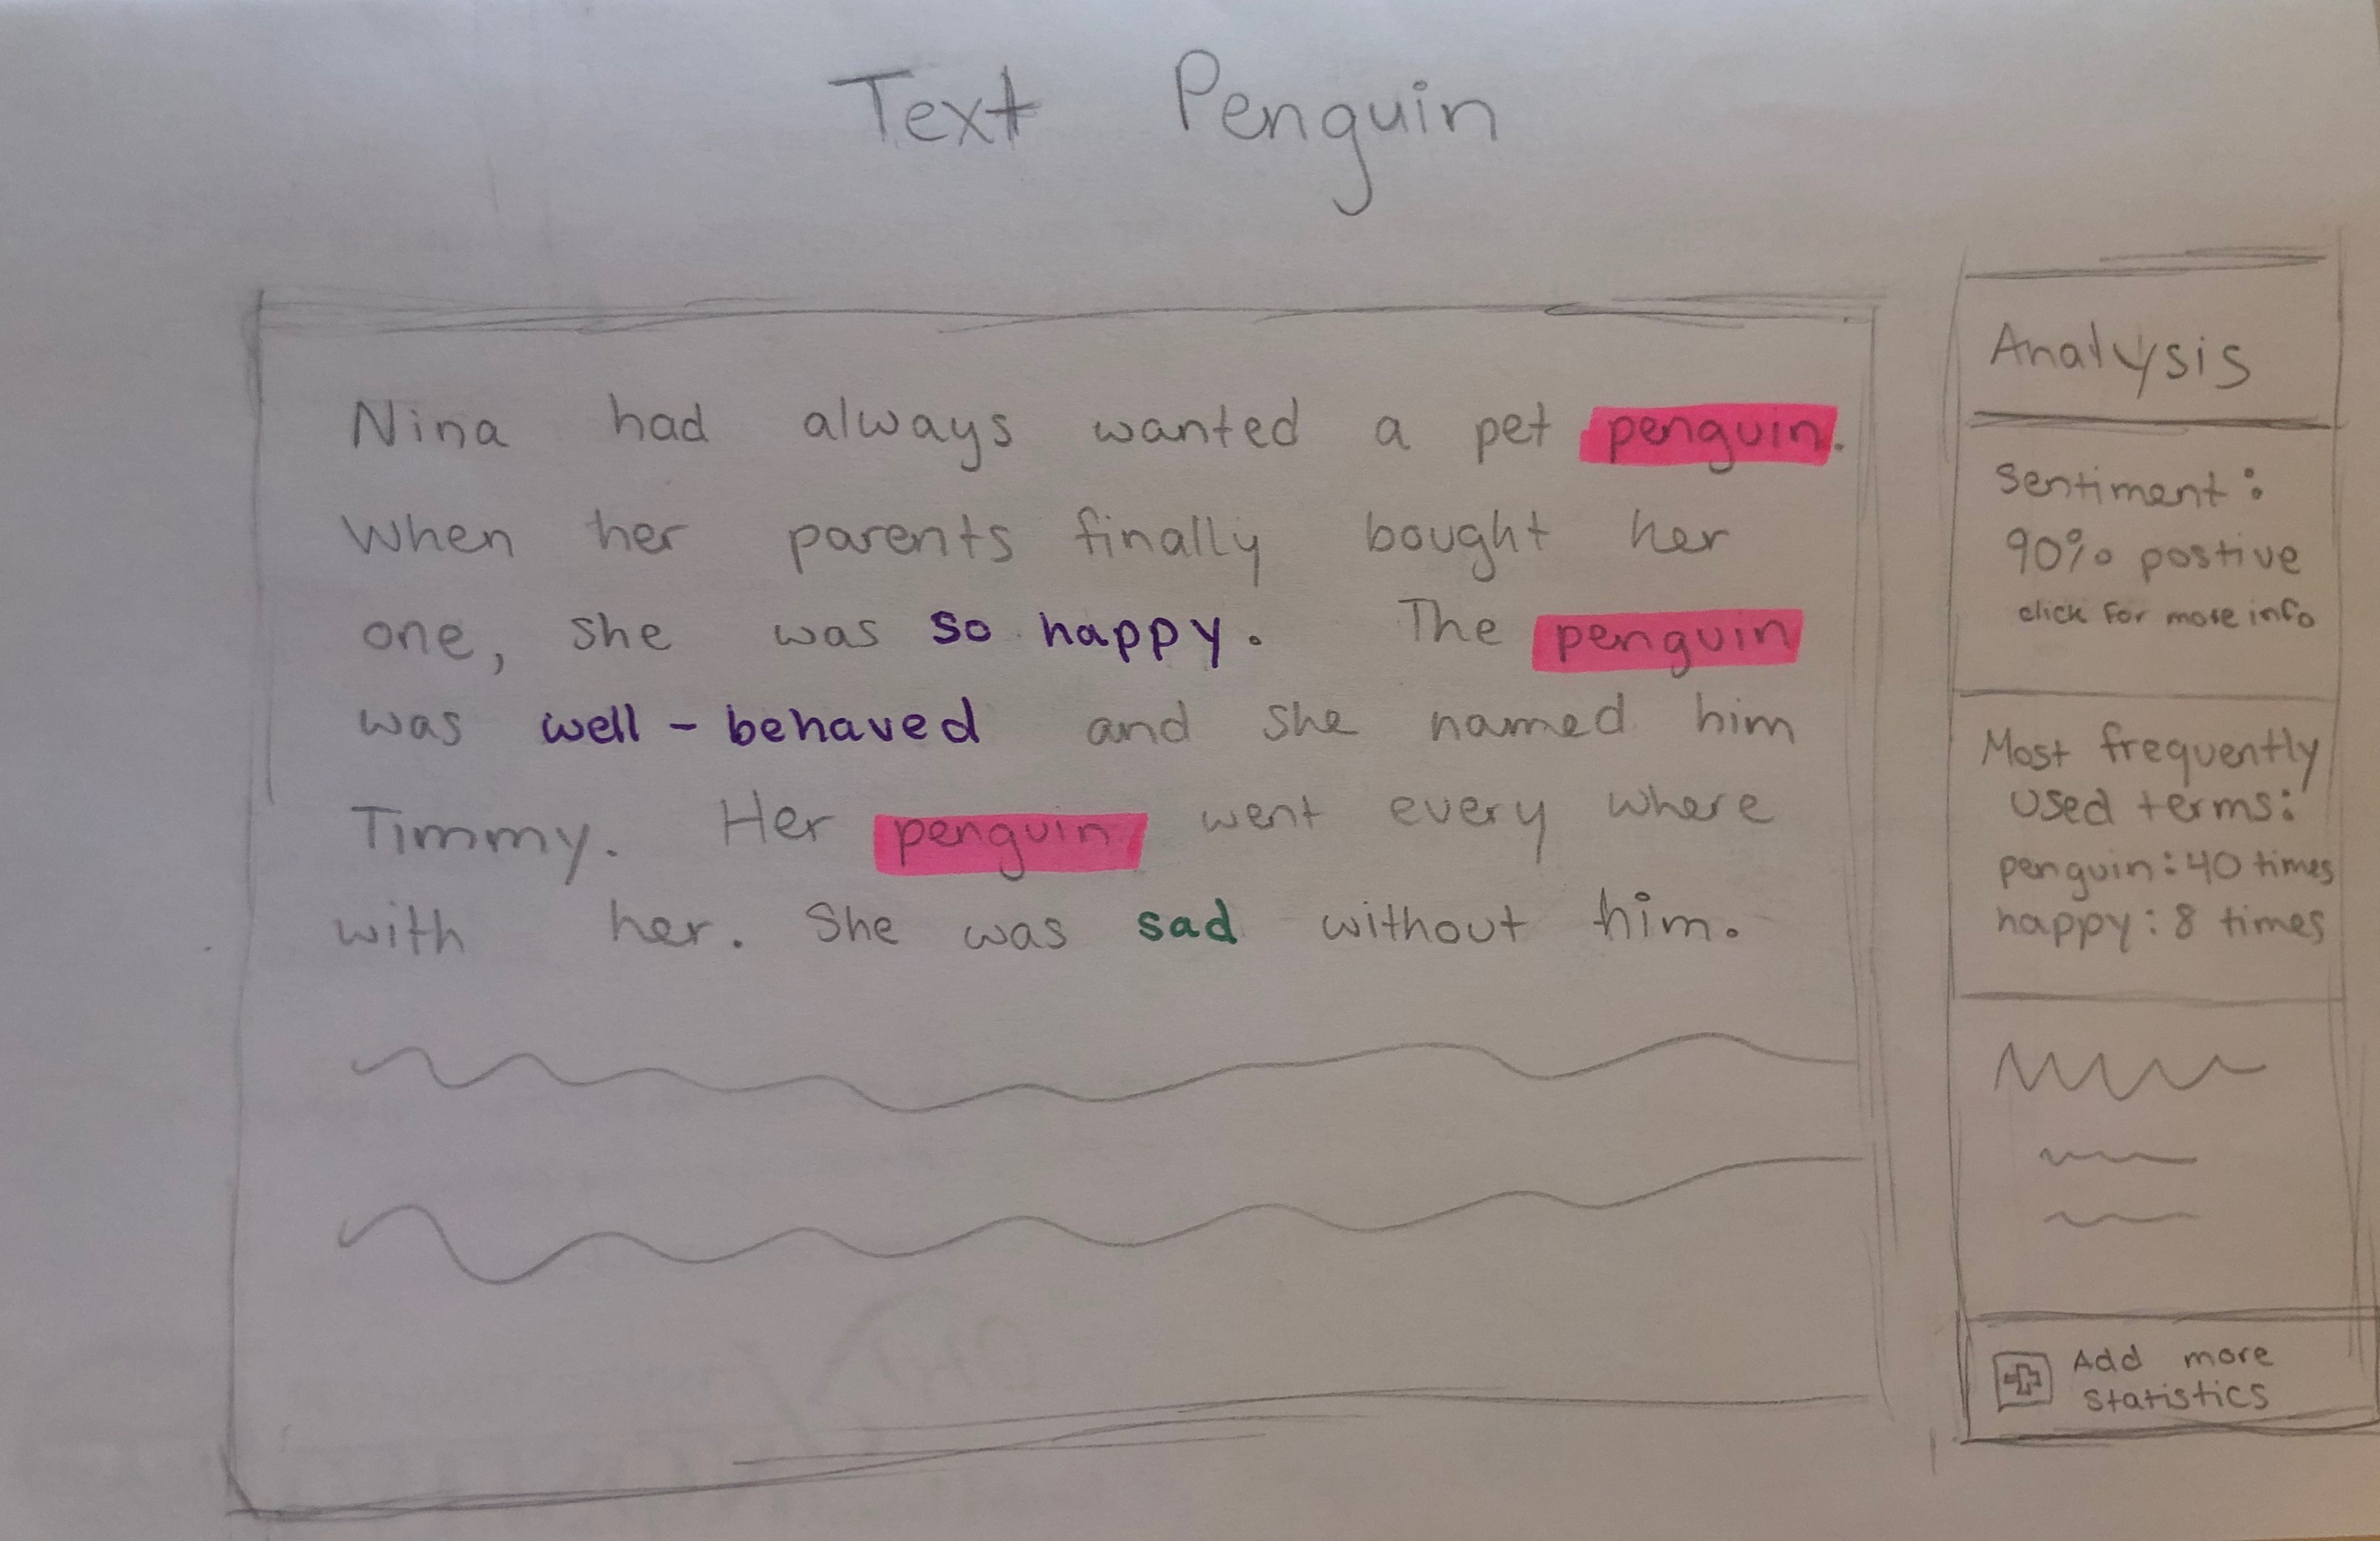 Text Penguin
Nina had always wanted a pet penguin.
When her parents finally bought her
one, she was so happy. The penguin
was well-behaved and she named him
Timmy. Her penguin went every where
with her. She was sad without him.
Analysis
Sentiment:
90% postive
click for more info
Most frequently
used terms:
penguin: 40 times
happy: 8 times
Add more
statistics